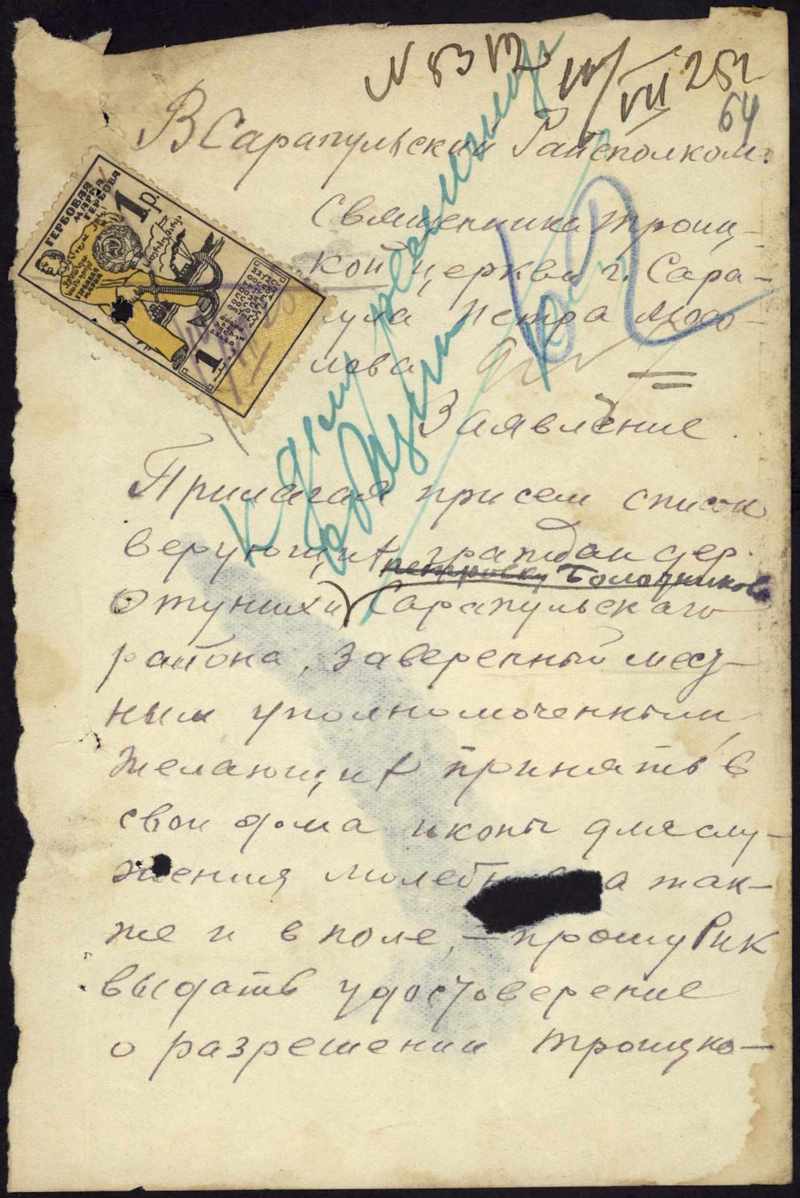 N 8312 10/VII 25г
64
В Сарапульский Райсполком.
Священника Троиц-
кой церкви г. Сара-
пула Петра
Заявление.
Прилагая при сем список
верующих граждан дер.
Болотниково
Отуниха Сарапульского
района, заверенный мест-
ным уполномоченным,
желающих принять в
свои дома иконы для слу-
жения молебнов а так-
же и в поле, – прошу Рик
выдать удостоверение
о разрешении Троицко-
К делу
ГЕРБОВАЯ
МАРКА
1 р.
1